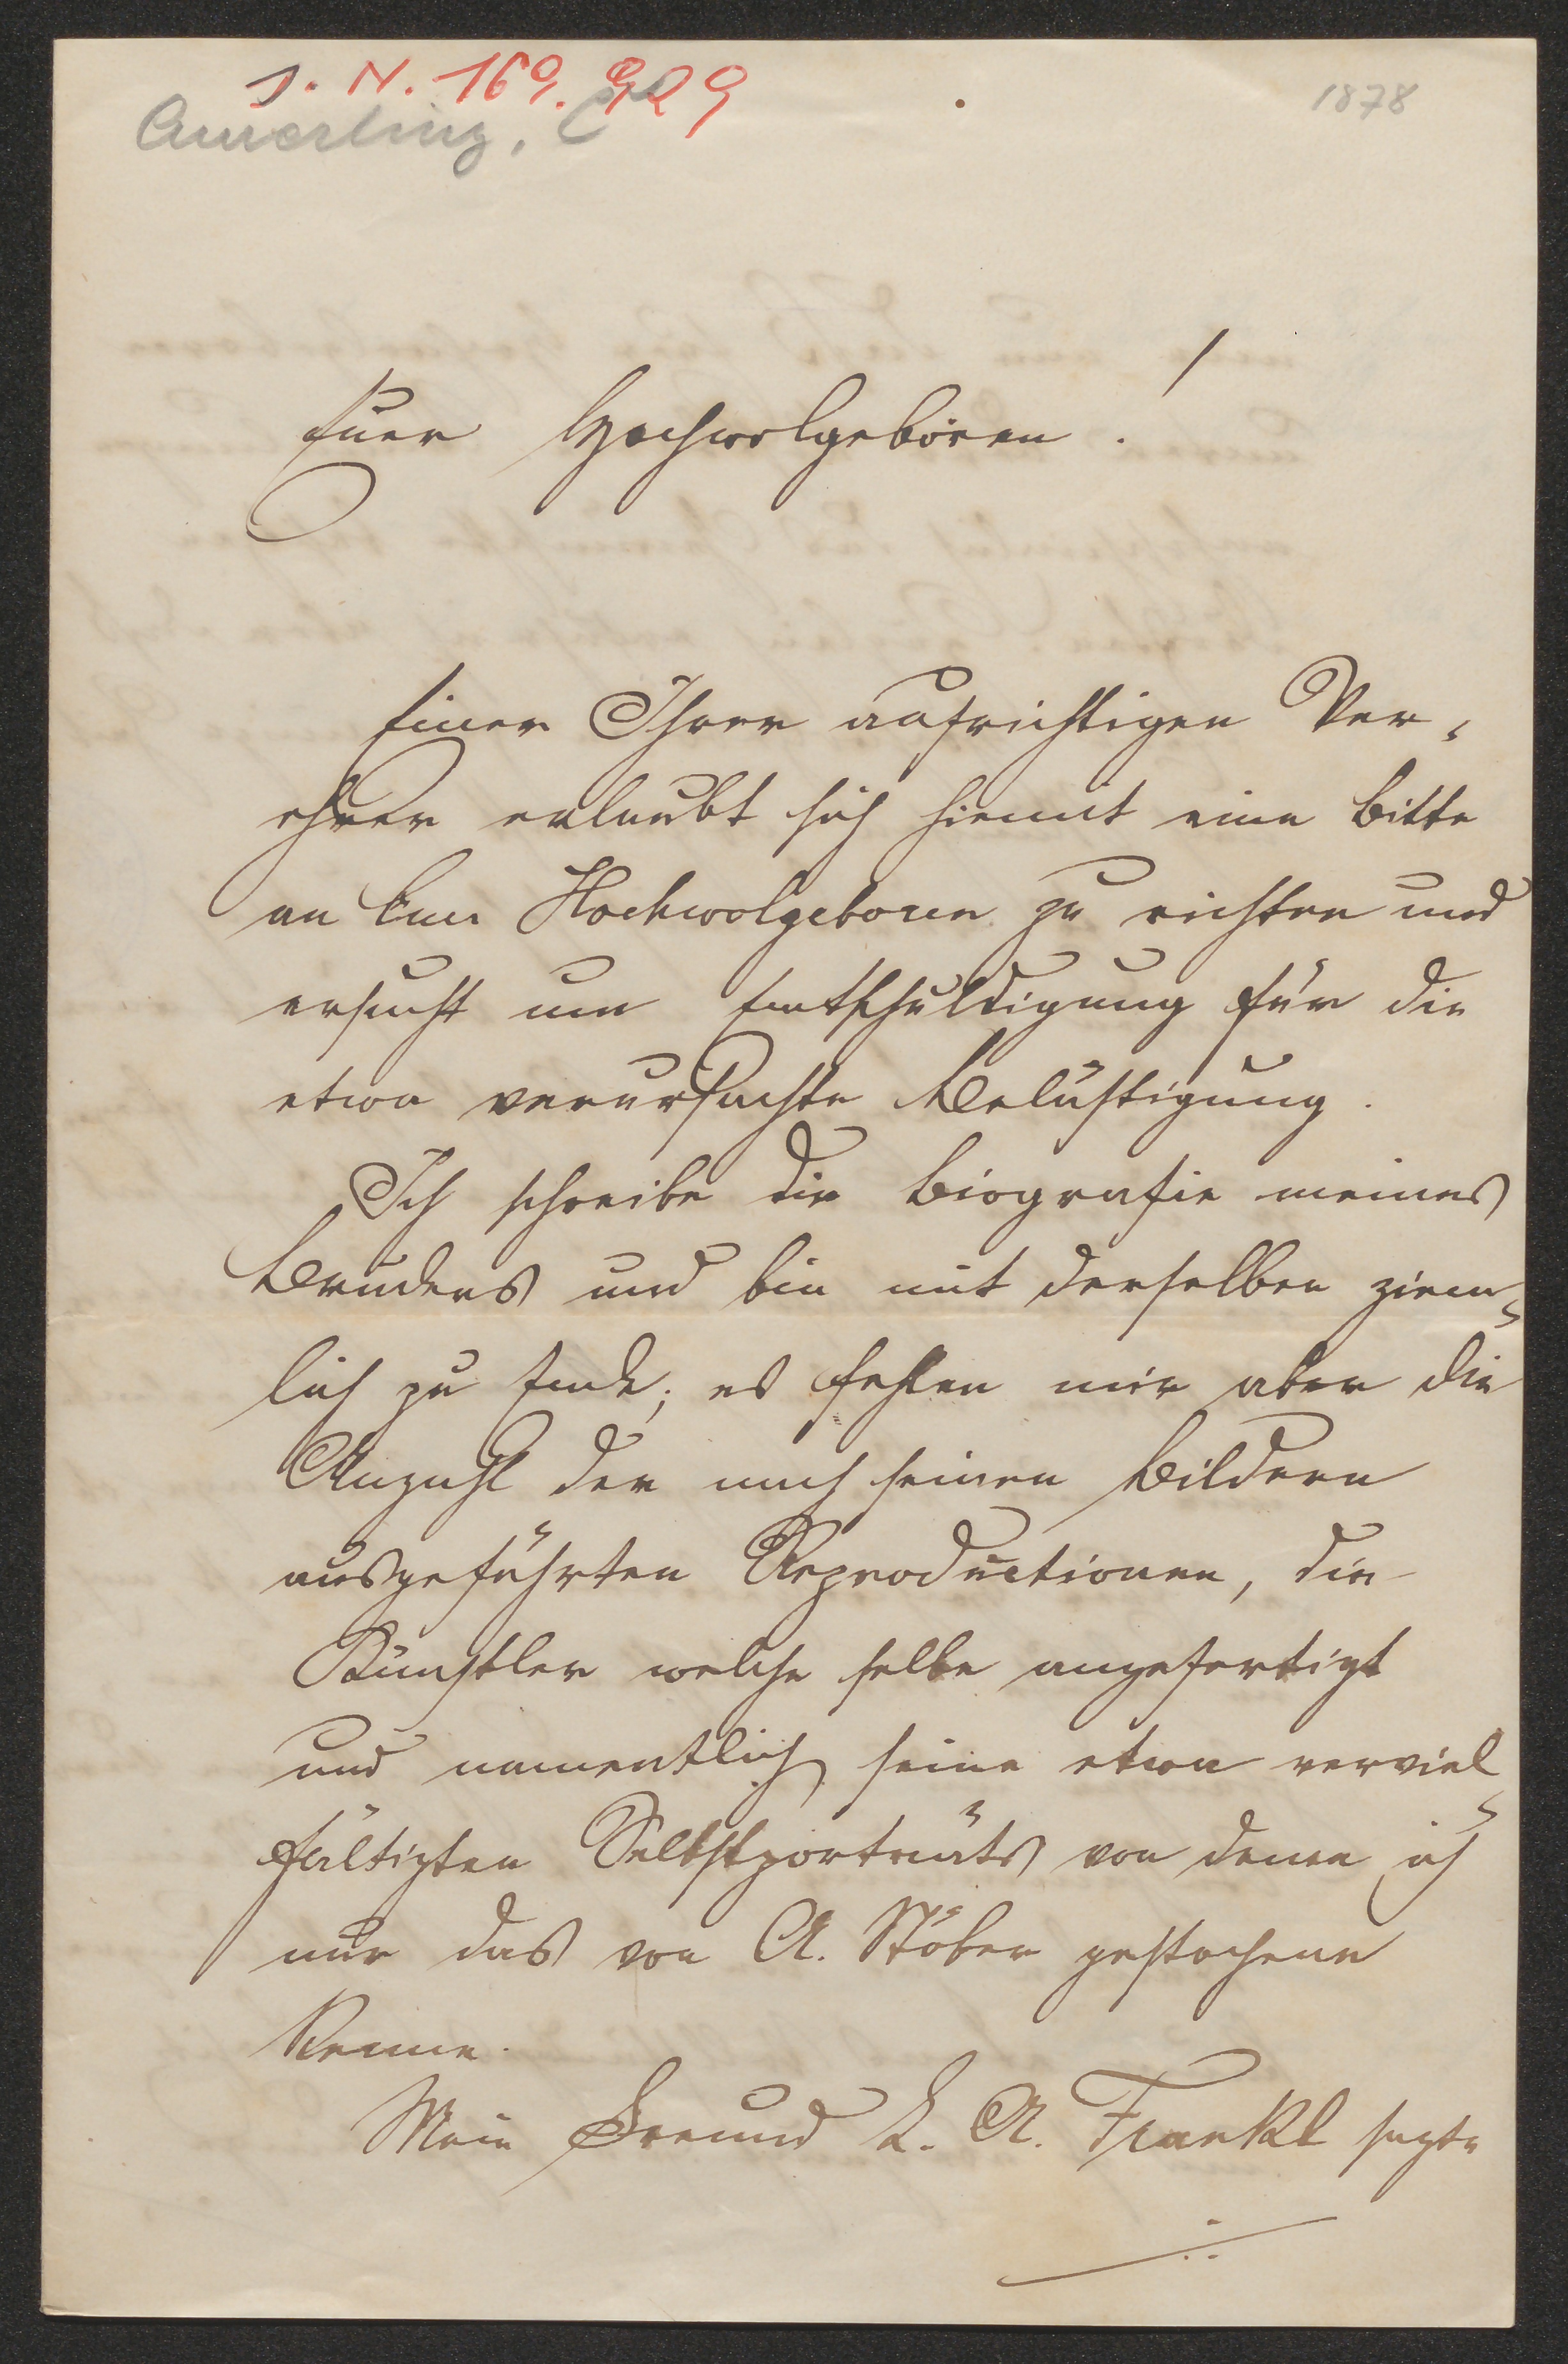 J. N. 169.929
Amerling, C
1878
Euer Hochwolgeboren!
Einer Ihrer aufrichtigen Ver-
ehrer erlaubt sich hiemit eine Bitte
an Euer Hochwolgeboren zu richten und
ersucht um Entschuldigung für die
etwa verursachte Belästigung.
Ich schreibe die Biografie meines
Bruders und bin mit derselben ziem-
lich zu Ende; es fehlen mir aber die
Anzahl der nach seinen Bildern
ausgeführten Reproductionen, die
Künstler welche selbe angefertigt
und namentlich seine etwa verviel-
fältigten Selbstporträts von denen ich
nur das von A. Stöber gestochene
kenne.
Mein Freund L. A. Frankl sagte